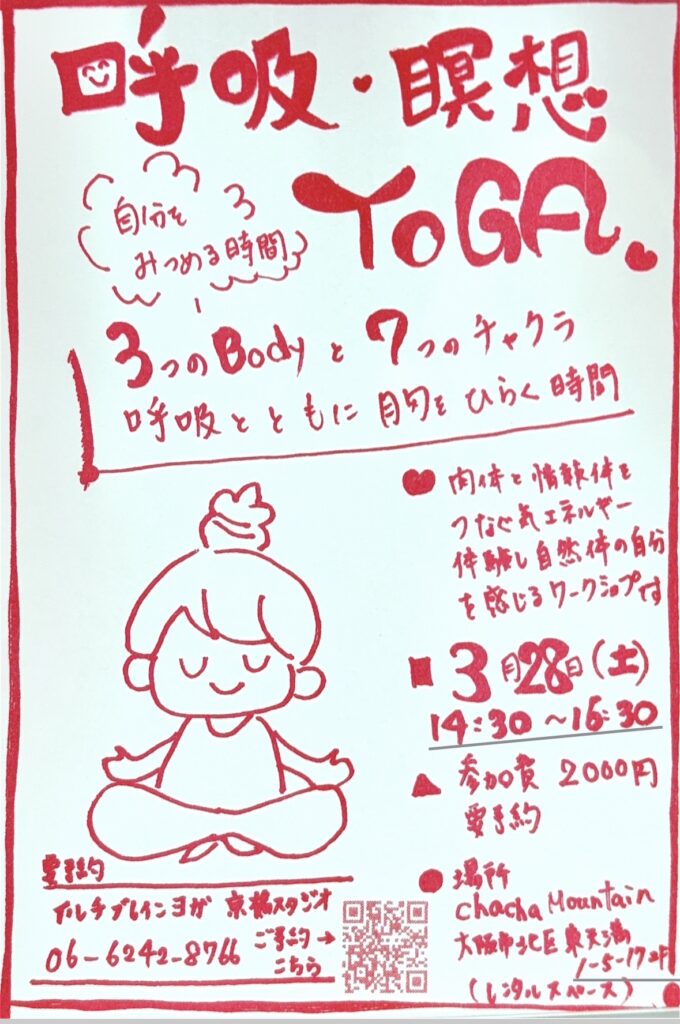 呼吸・瞑想
YOGA
自分を
みつめる時間
3つのBodyと7つのチャクラ
呼吸とともに自分をひらく時間
肉体と情報体を
つなぐ気エネルギー
体験し自然体の自分
を感じるワークショップです
3月28日(土)
14:30～16:30
参加費 2000円
要予約
場所
chacha Mountain
大阪市北区東天満
1-5-17 2F
(レンタルスペース)
要予約
イルチブレインヨガ 京橋スタジオ
06-6242-8766
ご予約→
こちら